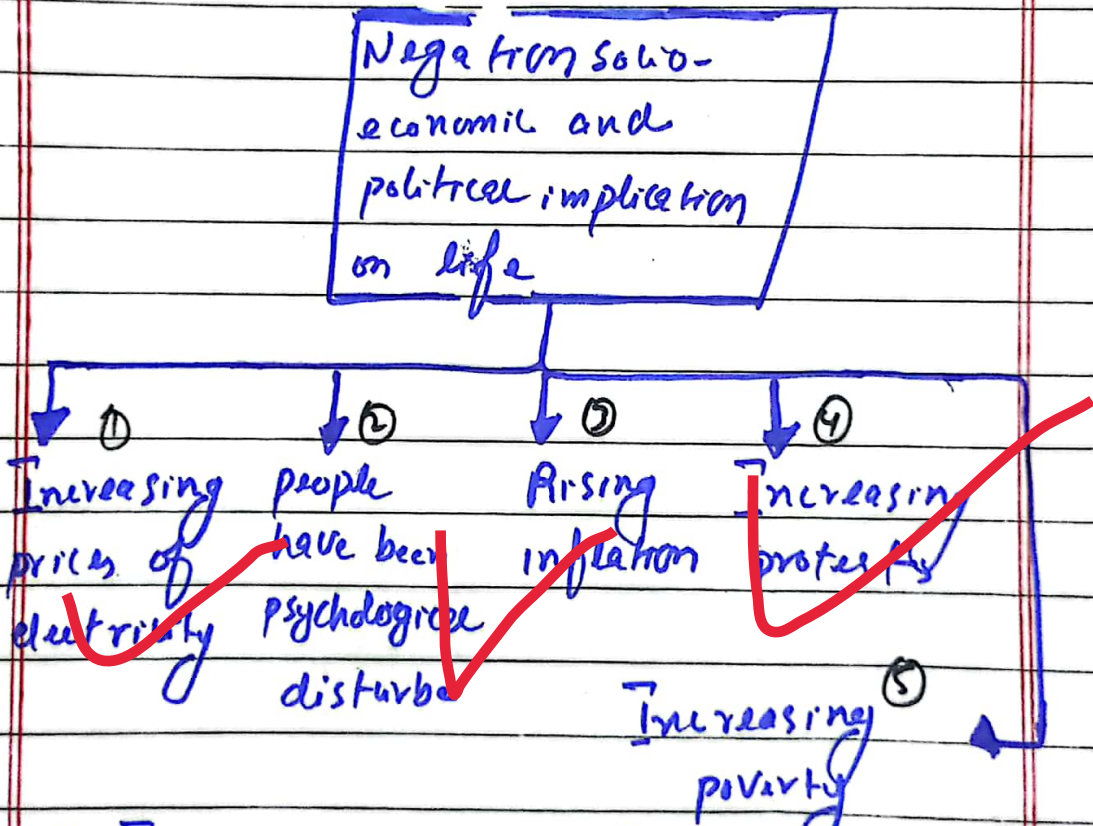 Negation socio-
economic and
political implication
on life
①
Increasing
prices of
electricity
②
people
have been
psychological
disturbe
③
Rising
inflation
④
Increasing
protests
⑤
Increasing
poverty